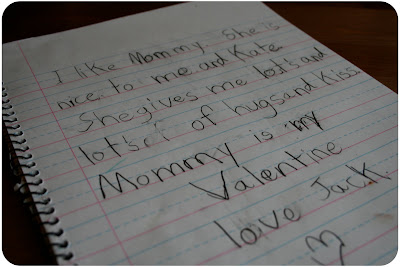 I like Mommy She is
nice to me and Kate
She gives me lots and
lots of hugs and kiss.
Mommy is my
Valentine
love Jack.